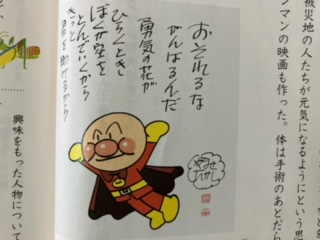 被災地の人たちが元気になるようにという思
ンマンの映画も作った。体は手術のあとだら
おそれるな
がんばるんだ
勇気の花が
ひらくとき
ぼくが空を
とんでいくから
きっと
君を助けるから
やなせ
たかし
興味をもった人物について